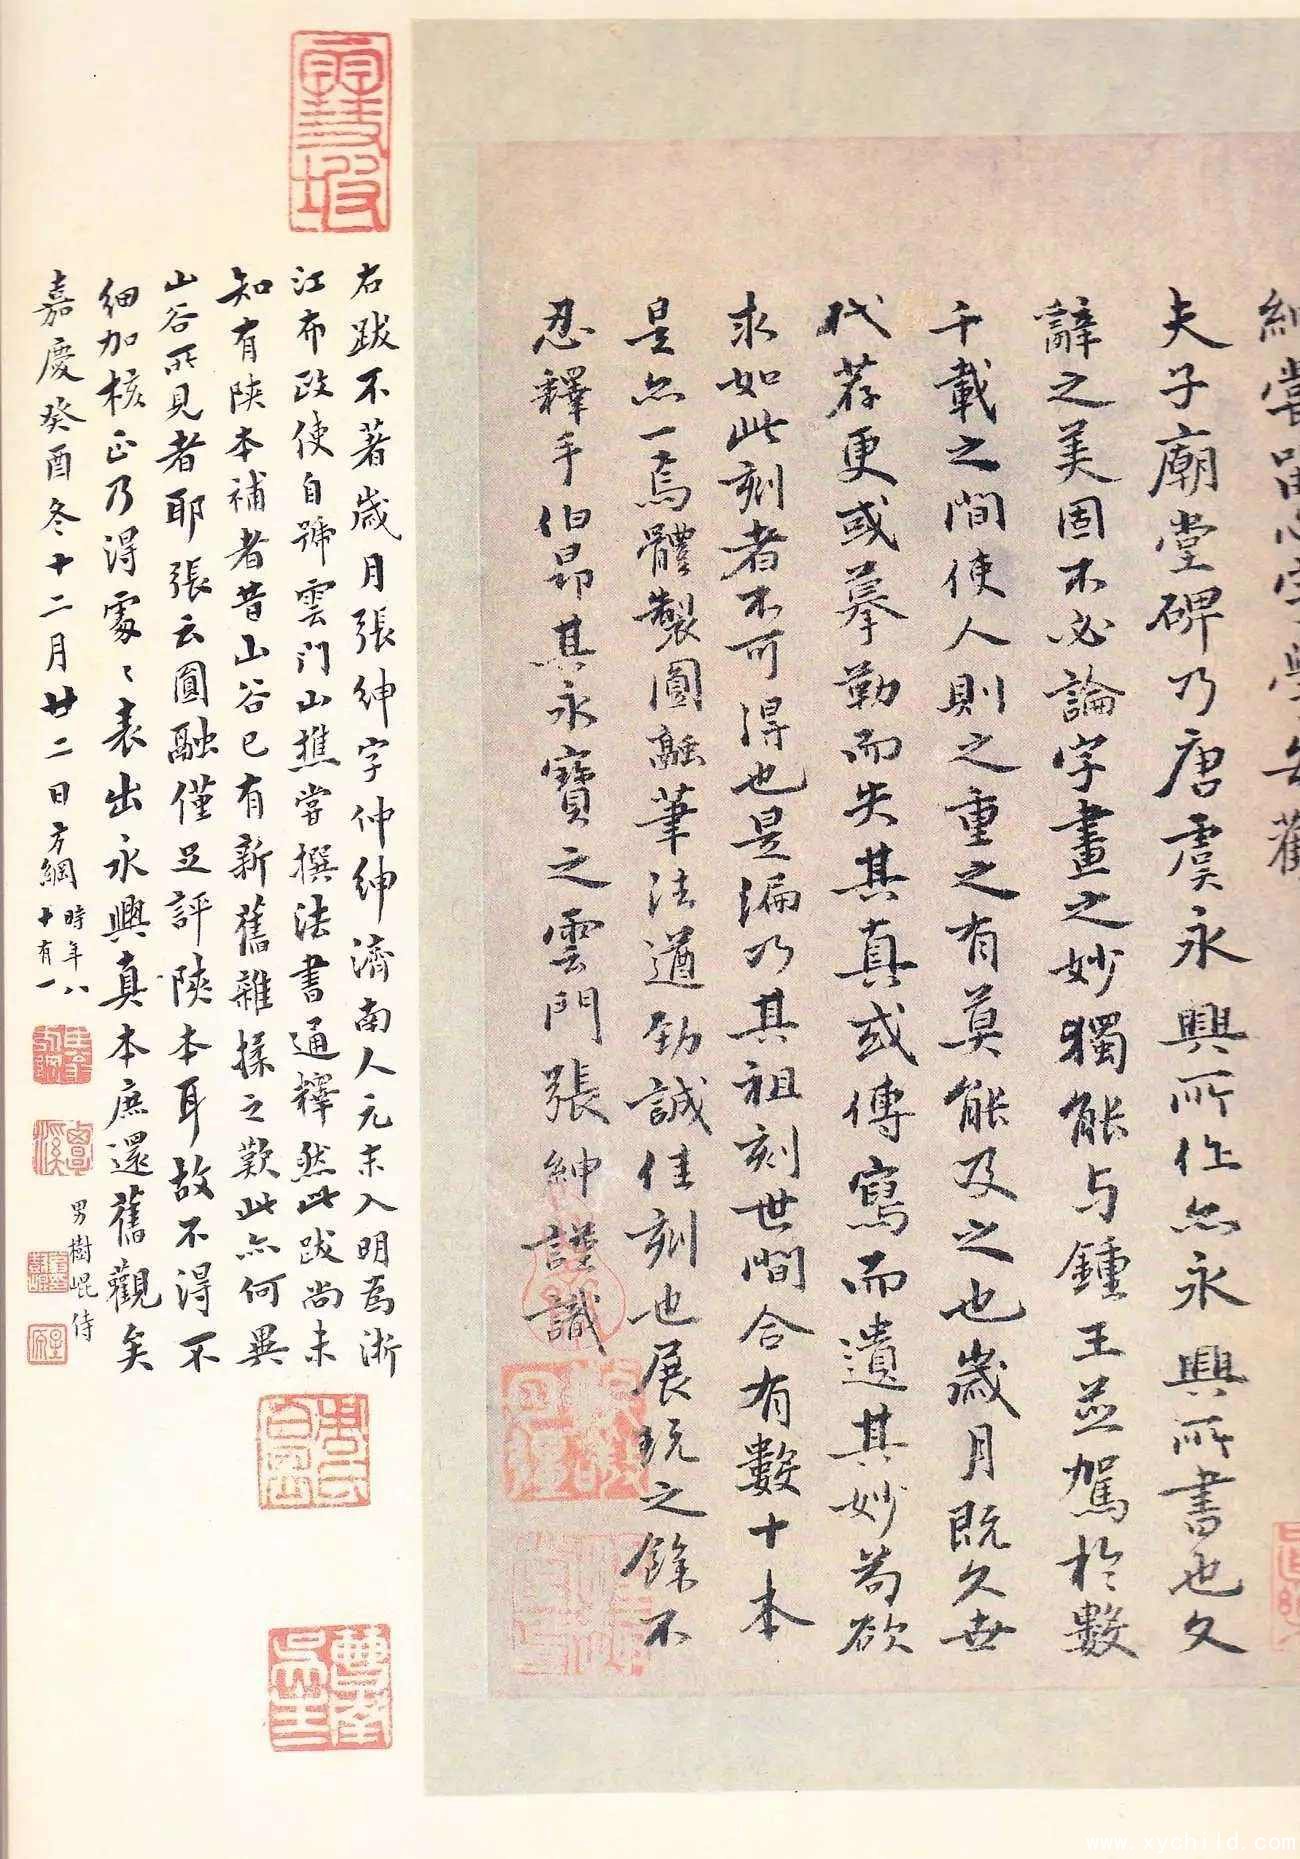 夫子廟堂碑乃唐虞永興所作亦永興所書也文
辭之美固不必論字畫之妙獨能与鍾王並駕於數
千載之間使人則之重之有莫能及之也歲月既久世
代荐更或摹勒而失其真或傳寫而遺其妙苟欲
求如此刻者不可得也是編乃其祖刻世間合有數十本
是亦一焉體製圓融筆法遒勁誠佳刻也展玩之餘不
忍釋手伯昂其永寶之雲門張紳謹識
右跋不著歲月張紳字仲紳濟南人元末入明為浙
江布政使自號雲門山樵嘗撰法書通釋然此跋尚未
知有陝本補者昔山谷已有新舊雜揉之歎此亦何異
山谷所見者耶張云圓融僅足評陝本耳故不得不
細加核正乃得處〻表出永興真本庶還舊觀矣
嘉慶癸酉冬十二月廿二日方綱時年八
十有一
男樹崐侍
雪坡
覃溪
曹南
吳主
www.xychild.com